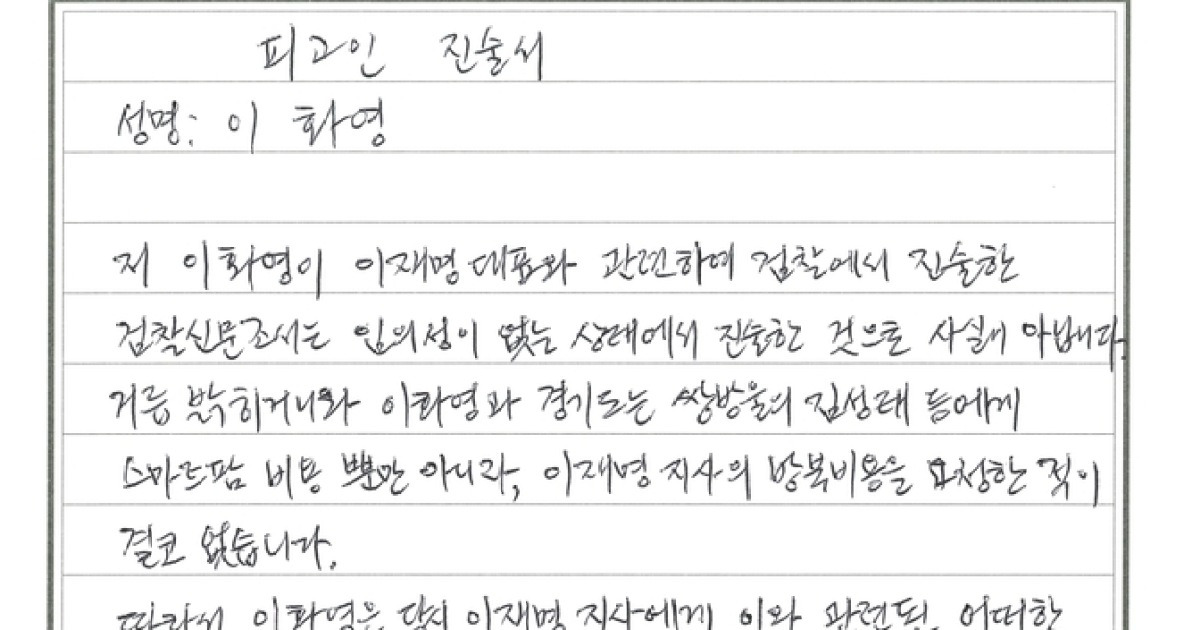 피고인 진술서
성명: 이 화영
저 이화영이 이재명대표와 관련하여 검찰에서 진술한
검찰신문조서는 임의성이 없는 상태에서 진술한 것으로 사실이 아닙니다.
거듭 밝히거니와 이화영과 경기도는 쌍방울의 김성태 등에게
스마트팜 비용 뿐만 아니라, 이재명 지사의 방북비용을 요청한 적이
결코 없습니다.
따라서 이화영은 당시 이재명 지사에게 이와 관련된 어떠한